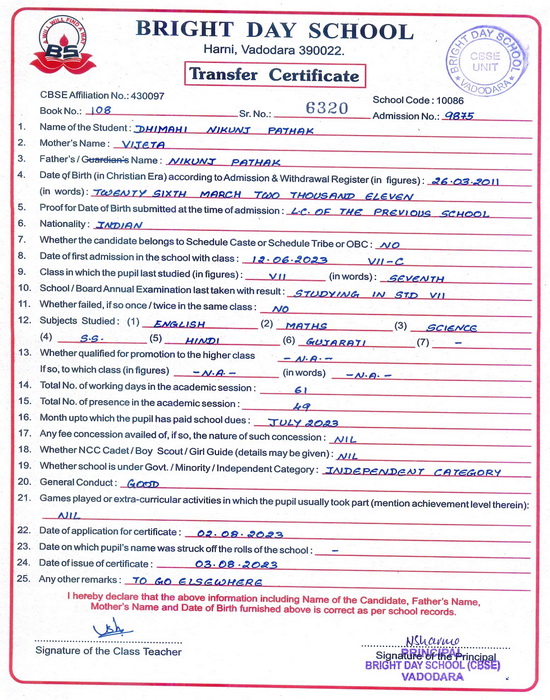 A WILL WILL FIND A WAY
BS
BRIGHT DAY SCHOOL
Harni, Vadodara 390022.
Transfer Certificate
BRIGHT DAY SCHOOL
CBSE
UNIT
VADODARA
CBSE Affiliation No.: 430097
School Code : 10086
Book No.: 108 Sr. No.: 6320 Admission No.: 9875
1. Name of the Student : DHIMAHI NIKUNJ PATHAK
2. Mother's Name : VIJETA
3. Father's / Guardian's Name : NIKUNJ PATHAK
4. Date of Birth (in Christian Era) according to Admission & Withdrawal Register (in figures) : 26.03.2011
(in words) : TWENTY SIXTH MARCH TWO THOUSAND ELEVEN
5. Proof for Date of Birth submitted at the time of admission : L.C. OF THE PREVIOUS SCHOOL
6. Nationality : INDIAN
7. Whether the candidate belongs to Schedule Caste or Schedule Tribe or OBC : NO
8. Date of first admission in the school with class : 12.06.2023 VII-C
9. Class in which the pupil last studied (in figures) : VII (in words) : SEVENTH
10. School / Board Annual Examination last taken with result : STUDYING IN STD VII
11. Whether failed, if so once / twice in the same class : NO
12. Subjects Studied : (1) ENGLISH (2) MATHS (3) SCIENCE
(4) S.S. (5) HINDI (6) GUJARATI (7) -
13. Whether qualified for promotion to the higher class - N.A. -
If so, to which class (in figures) - N.A. - (in words) - N.A. -
14. Total No. of working days in the academic session : 61
15. Total No. of presence in the academic session : 49
16. Month upto which the pupil has paid school dues : JULY 2023
17. Any fee concession availed of, if so, the nature of such concession : NIL
18. Whether NCC Cadet / Boy Scout / Girl Guide (details may be given) : NIL
19. Whether school is under Govt. / Minority / Independent Category : INDEPENDENT CATEGORY
20. General Conduct : GOOD
21. Games played or extra-curricular activities in which the pupil usually took part (mention achievement level therein):
NIL
22. Date of application for certificate : 02.08.2023
23. Date on which pupil's name was struck off the rolls of the school : -
24. Date of issue of certificate : 03.08.2023
25. Any other remarks : TO GO ELSEWHERE
I hereby declare that the above information including Name of the Candidate, Father's Name,
Mother's Name and Date of Birth furnished above is correct as per school records.
NSharma
Signature of the Class Teacher
Signature of the Principal
PRINCIPAL
BRIGHT DAY SCHOOL (CBSE)
VADODARA